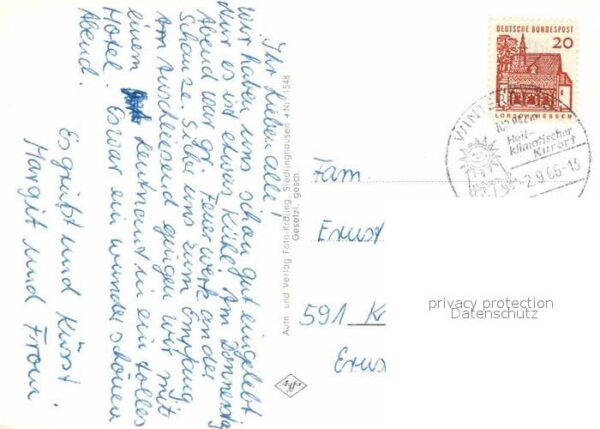 Ihr Lieben alle!
Wir haben uns schon gut eingelebt
nur es ist etwas kühl. Am Donnerstag
Abend war Gr. Feuerwerk an der
Schanze. Siehe uns zum Empfang
Am Anschliessend gingen wir mit
einem Leutnant in ein tolles
Hotel. Es war ein wunderschöner
Abend.
Es grüßt und küsst
Margit und Frau
Autn und Verlag Foto-Kräling, Siedlinghausen • Nr. 1548
Gesetzl. gesch.
DEUTSCHE BUNDESPOST
20
LORSCH HESSEN
WINTE
Heil-
klimatischer
Kurort
-2.9.66-15
Fam.
Ernst
591 Kr
Erns
privacy protection
Datenschutz